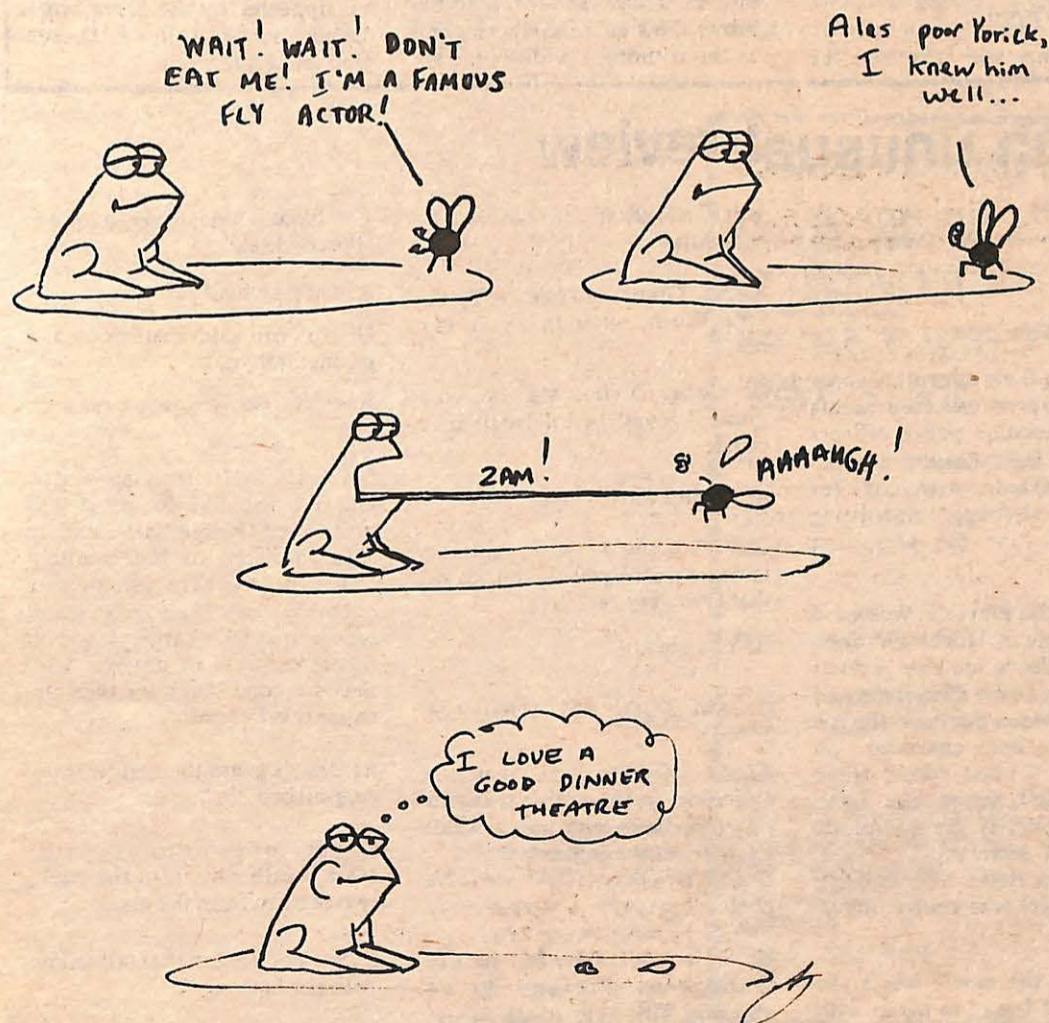 WAIT! WAIT! DON'T
EAT ME! I'M A FAMOUS
FLY ACTOR!
Alas poor Yorick,
I knew him
well...
ZAM!
AAAAUGH!
I LOVE A
GOOD DINNER
THEATRE